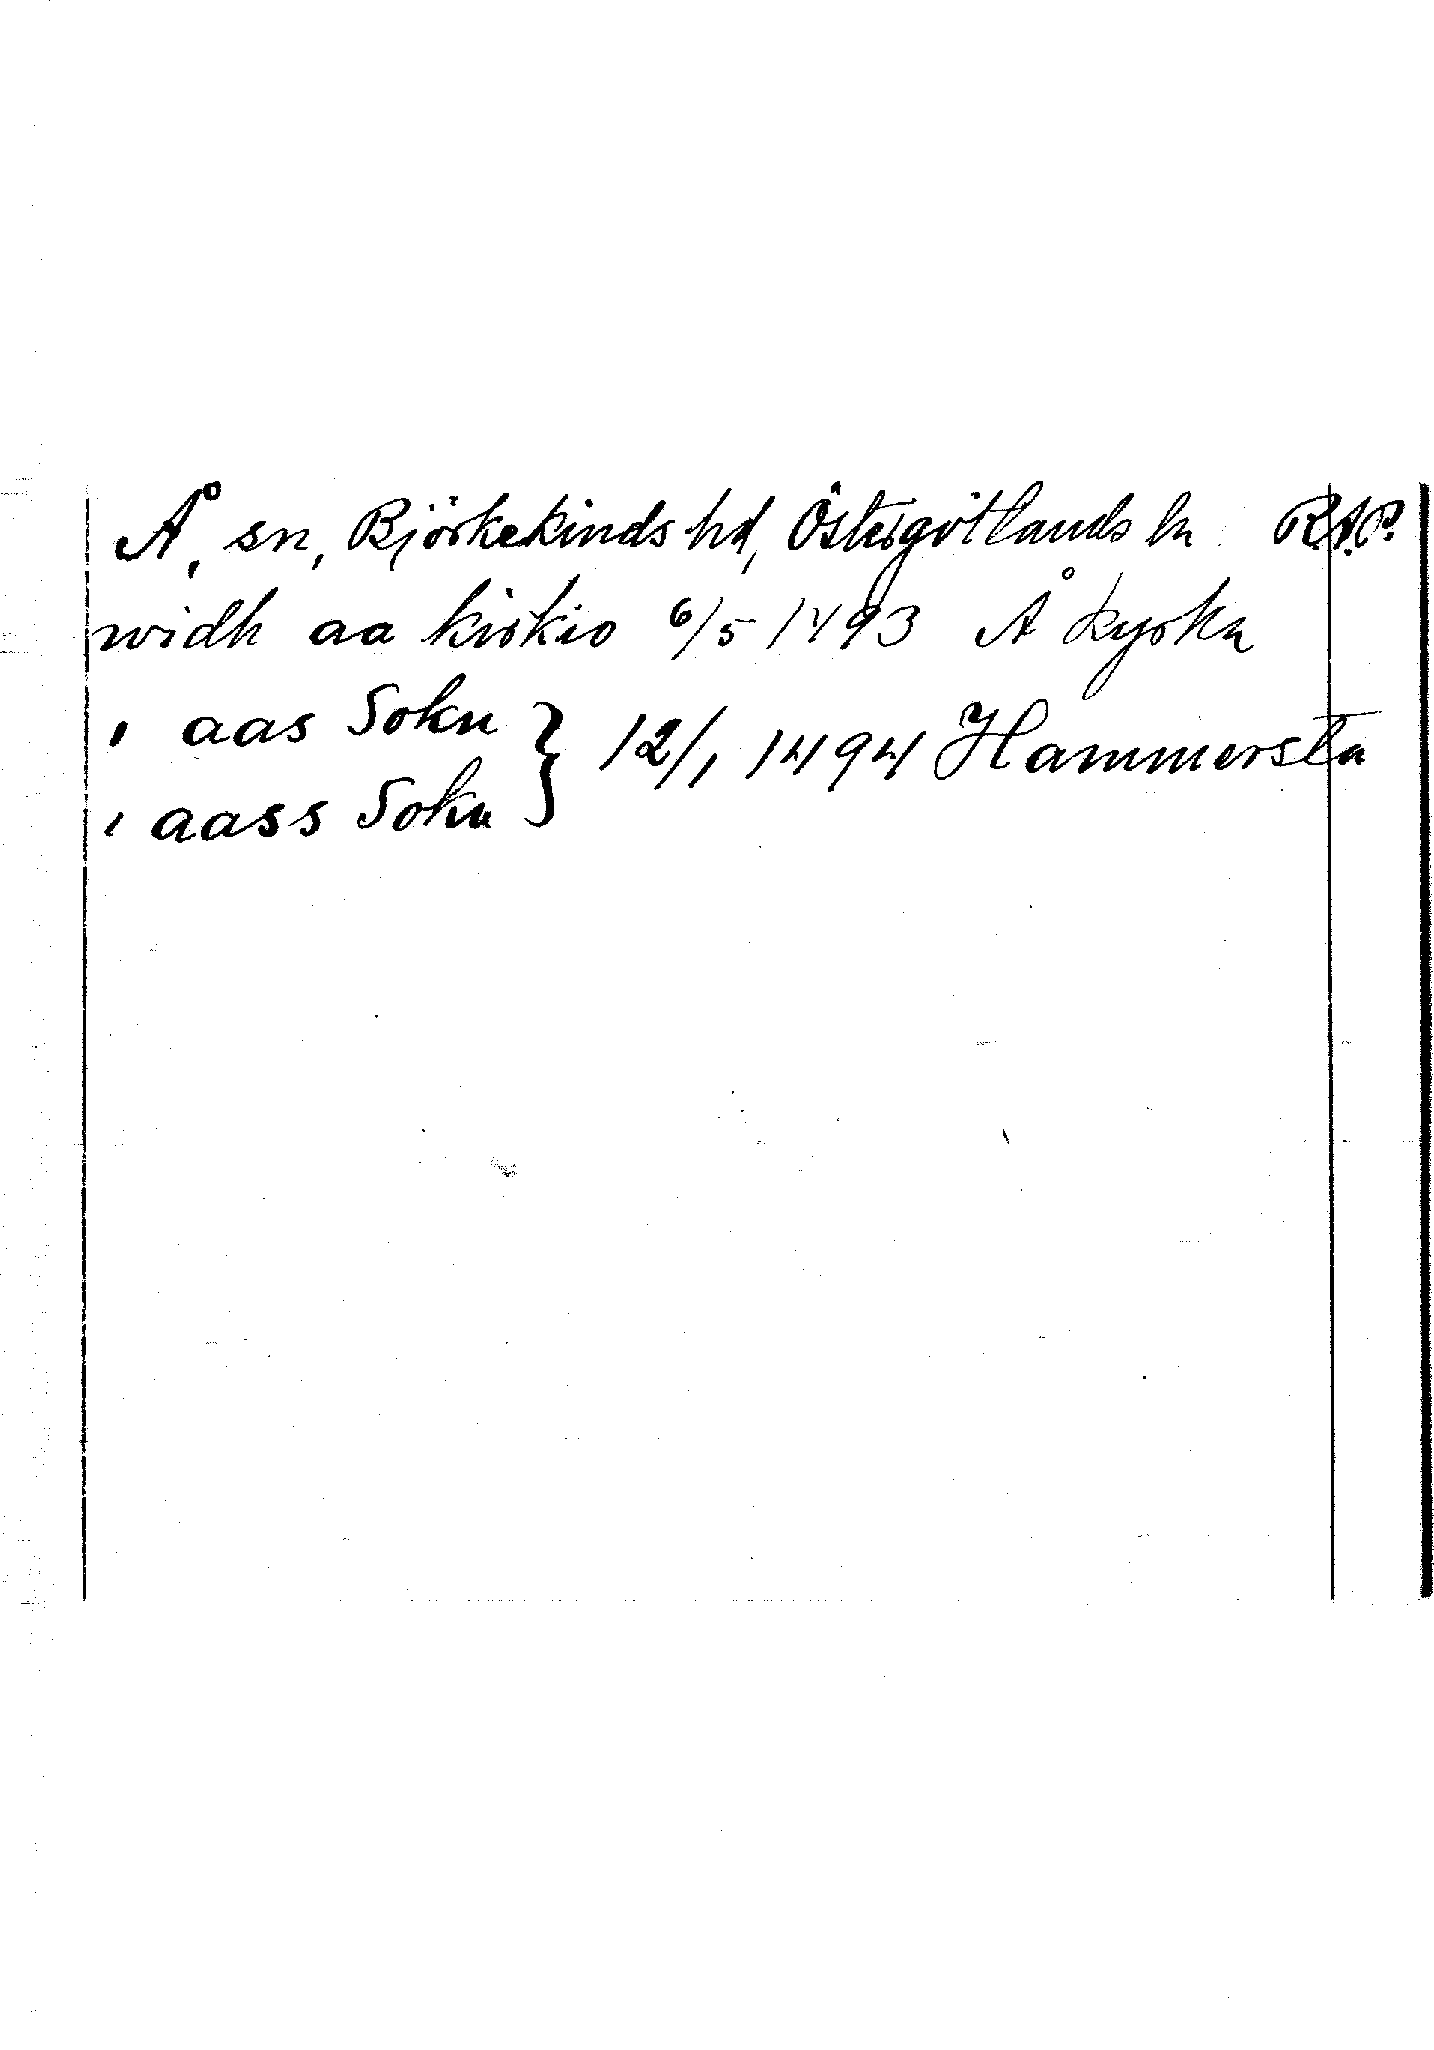 Å, sn, Björkekinds hd, Östergötlands ln R.A.P.
widh aa kirkio 6/5 1493 Å kyrka
i aas Sokn } 12/1 1494 Hammersta
i aass Sokn